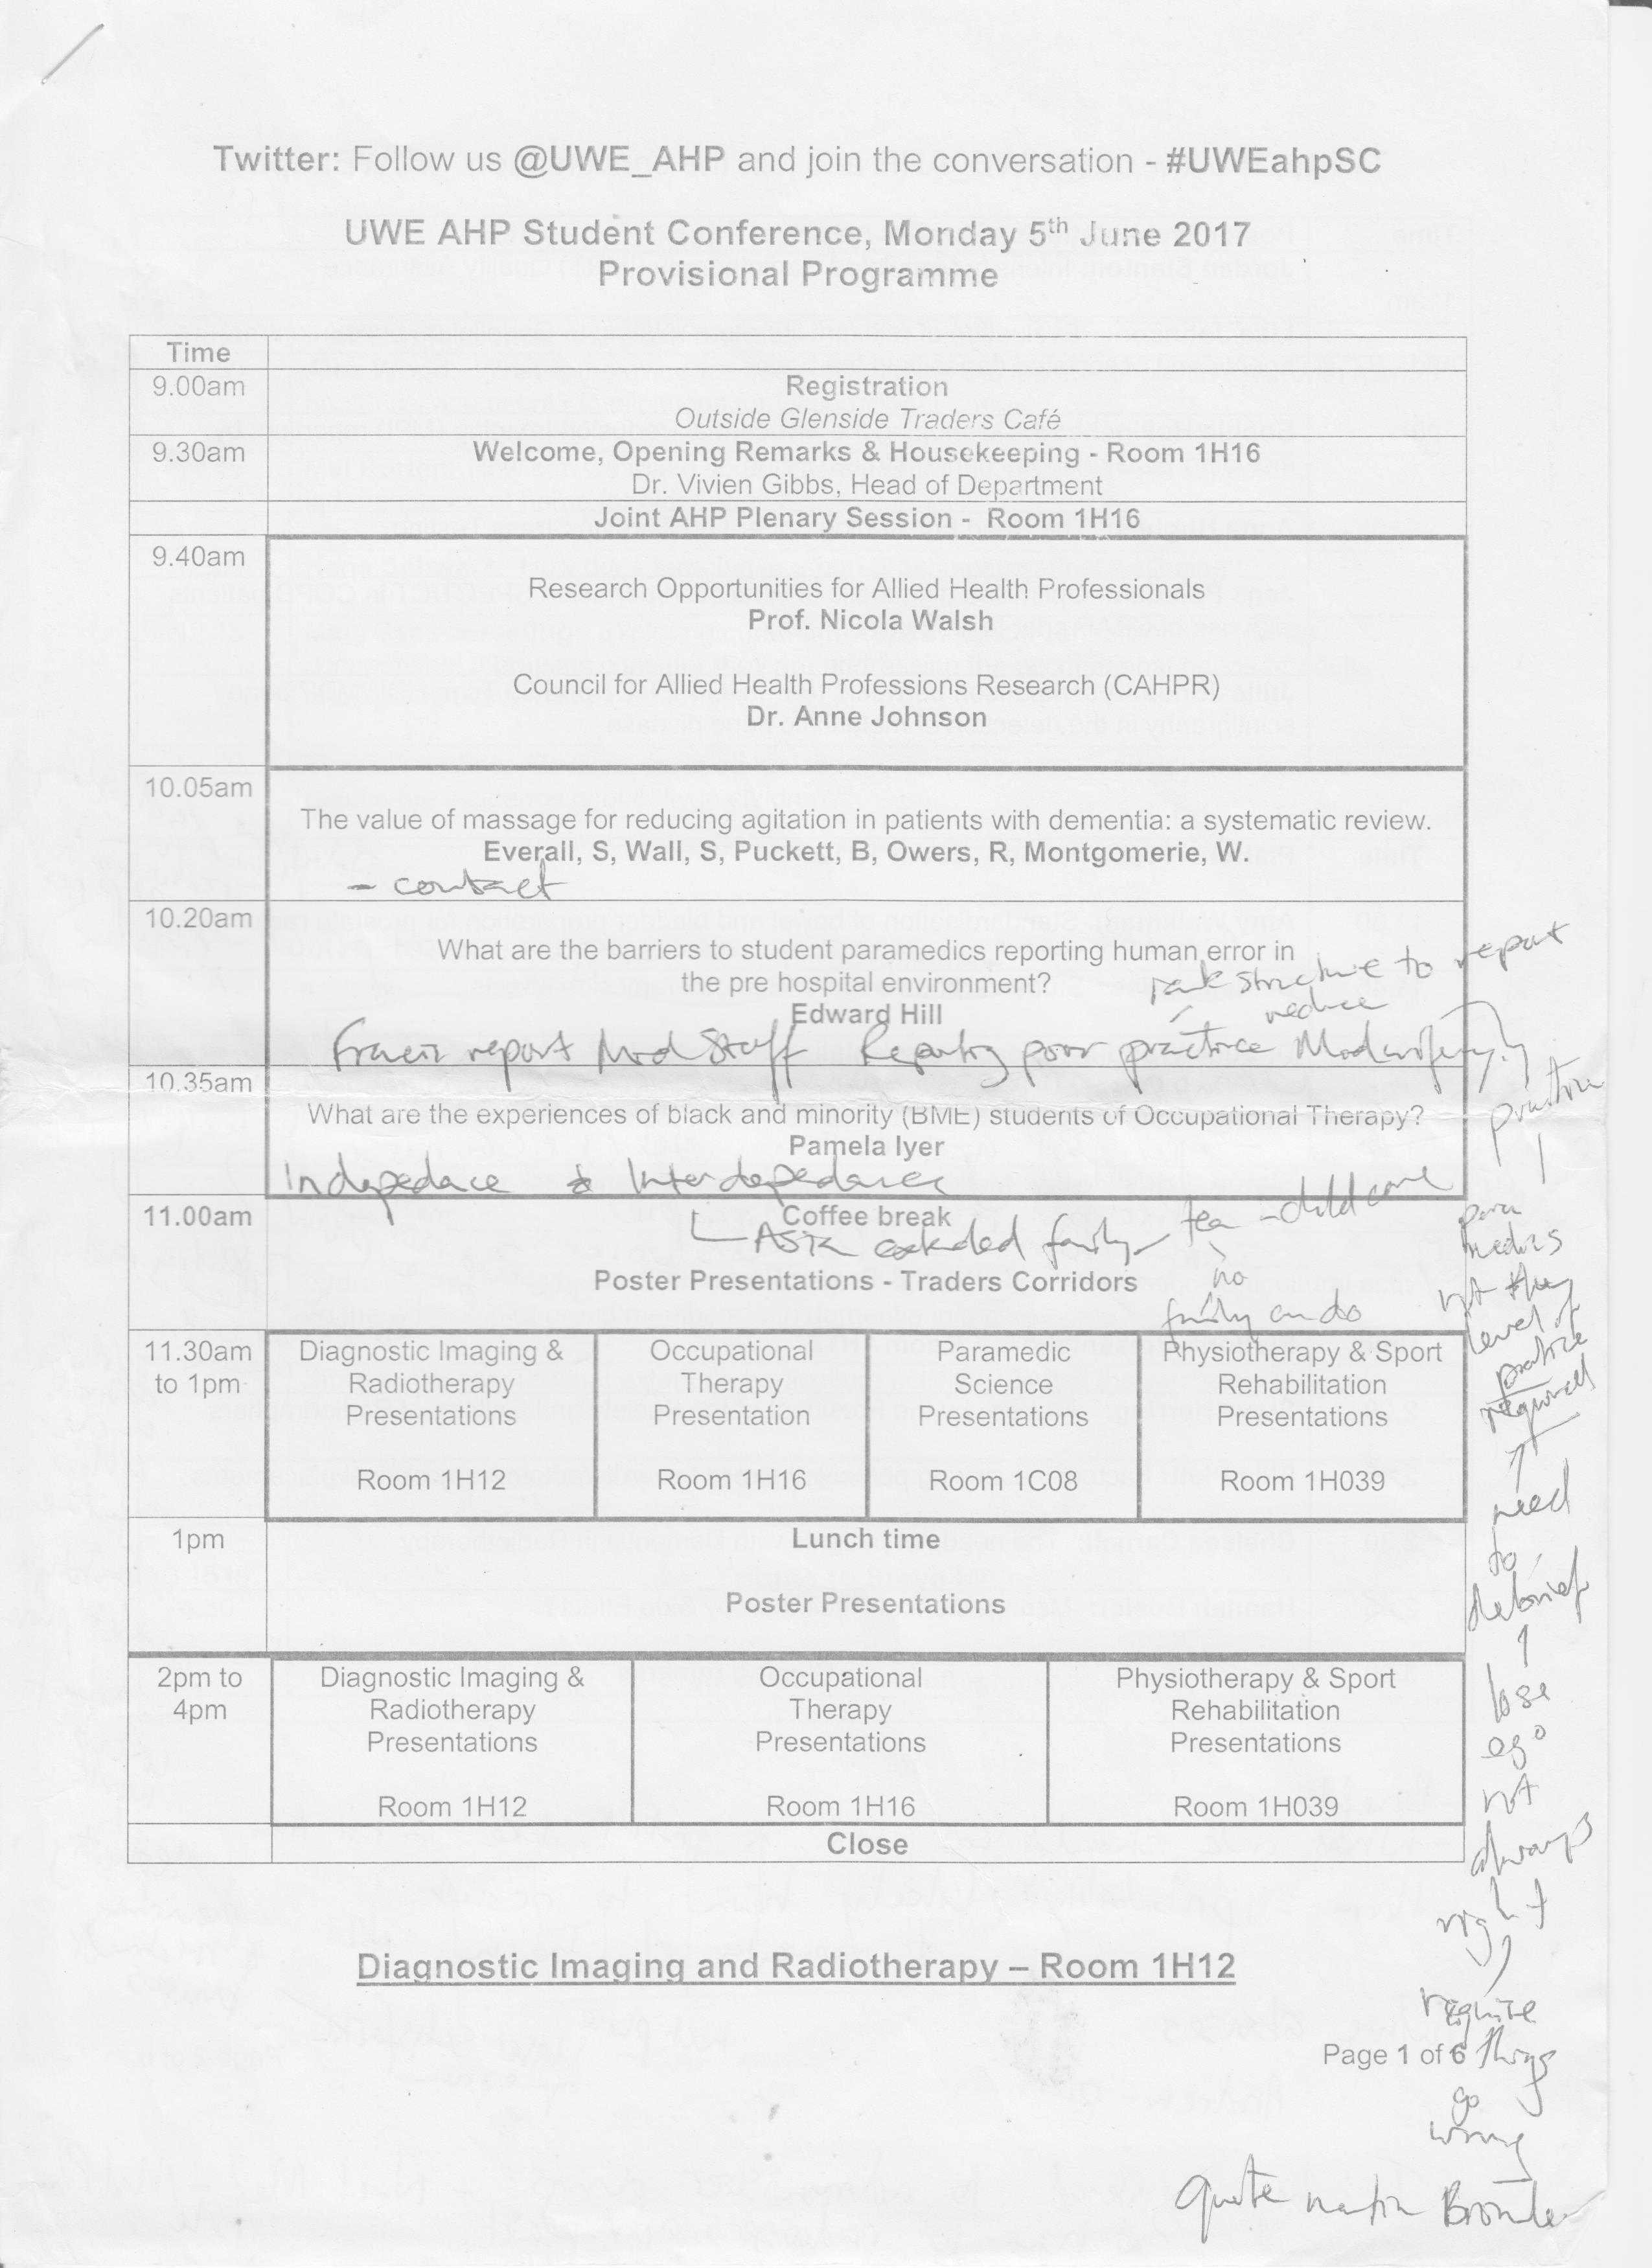 Twitter: Follow us @UWE_AHP and join the conversation - #UWEahpSC
UWE AHP Student Conference, Monday 5th June 2017
Provisional Programme
Time
9.00am
Registration
Outside Glenside Traders Café
9.30am
Welcome, Opening Remarks & Housekeeping - Room 1H16
Dr. Vivien Gibbs, Head of Department
Joint AHP Plenary Session - Room 1H16
9.40am
Research Opportunities for Allied Health Professionals
Prof. Nicola Walsh
Council for Allied Health Professions Research (CAHPR)
Dr. Anne Johnson
10.05am
The value of massage for reducing agitation in patients with dementia: a systematic review.
Everall, S, Wall, S, Puckett, B, Owers, R, Montgomerie, W.
- contact
10.20am
What are the barriers to student paramedics reporting human error in
the pre hospital environment?
Edward Hill
rank structure to report
reduce
report Mid Staff Reporting poor practice
practice
10.35am
What are the experiences of black and minority (BME) students of Occupational Therapy?
Pamela Iyer
Indepedace & Interdepedance
11.00am
Coffee break
extended family tea - child care
no
family can do
Poster Presentations - Traders Corridors
para
medics
not they
level of
practice
required
need
to
debrief
lose
ego
not
always
right
require
things
go
wrong
11.30am
to 1pm
Diagnostic Imaging &
Radiotherapy
Presentations
Room 1H12
Occupational
Therapy
Presentation
Room 1H16
Paramedic
Science
Presentations
Room 1C08
Physiotherapy & Sport
Rehabilitation
Presentations
Room 1H039
1pm
Lunch time
Poster Presentations
2pm to
4pm
Diagnostic Imaging &
Radiotherapy
Presentations
Room 1H12
Occupational
Therapy
Presentations
Room 1H16
Physiotherapy & Sport
Rehabilitation
Presentations
Room 1H039
Close
Diagnostic Imaging and Radiotherapy – Room 1H12
Page 1 of 6
quote